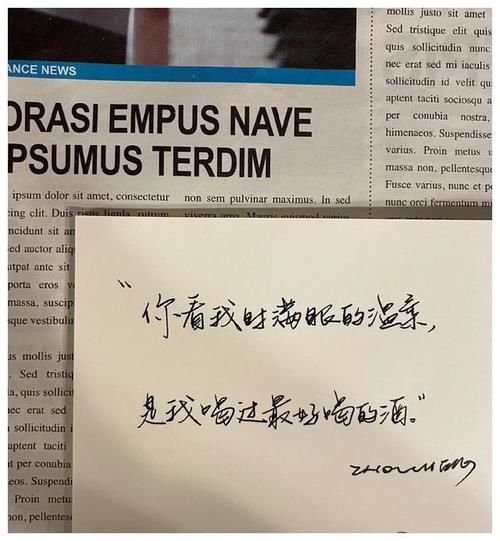 ANCE NEWS
ORASI EMPUS NAVE
PSUMUS TERDIM
ipsum dolor sit amet, consectetur
cing elit. Duis risus ligula, rutrum
incidunt sit am
Sed auctor aliq
utpat ante sit
porta eros v
massa, suscip
sque vestibulu
us mollis just
Sed tristique
la, quis sollici
ec erat sed mi
sollicitudin i
aptent taciti
per conubia
aeos. Suspendi
Proin metus
non, pellentes
non sem pulvinar maximus. In sed
viverra urna. Mauris euismod varius
mollis justo sit amet
Sed tristique elit quis
quis sollicitudin nunc
nec erat sed mi iaculis
sollicitudin id velit qu
aptent taciti sociosqu a
per conubia nostra,
himenaeos. Suspendisse
varius. Proin metus u
massa non, pellentesque
Fusce varius, nunc et p
nunc orci fermentum mi
“你看我时满眼的温柔,
是我喝过最好喝的酒。”